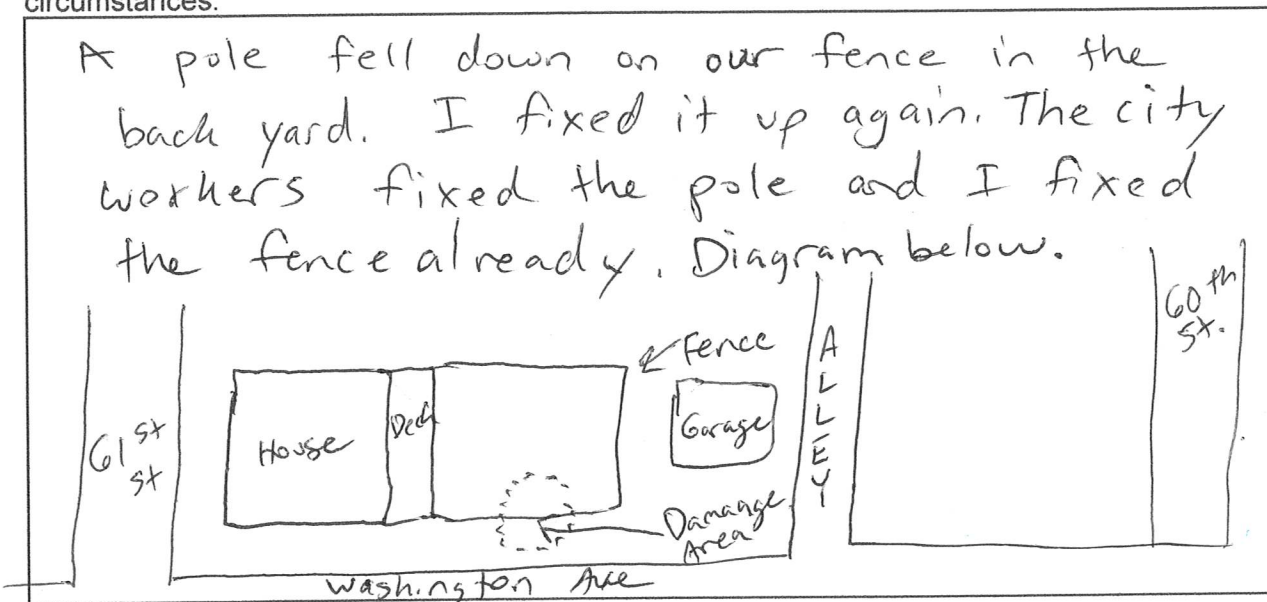 circumstances.
A pole fell down on our fence in the
back yard. I fixed it up again. The city
workers fixed the pole and I fixed
the fence already. Diagram below.
60th
St.
Fence
ALLEY
Deck
Garage
House
61st
St
Damange
Area
Washington Ave